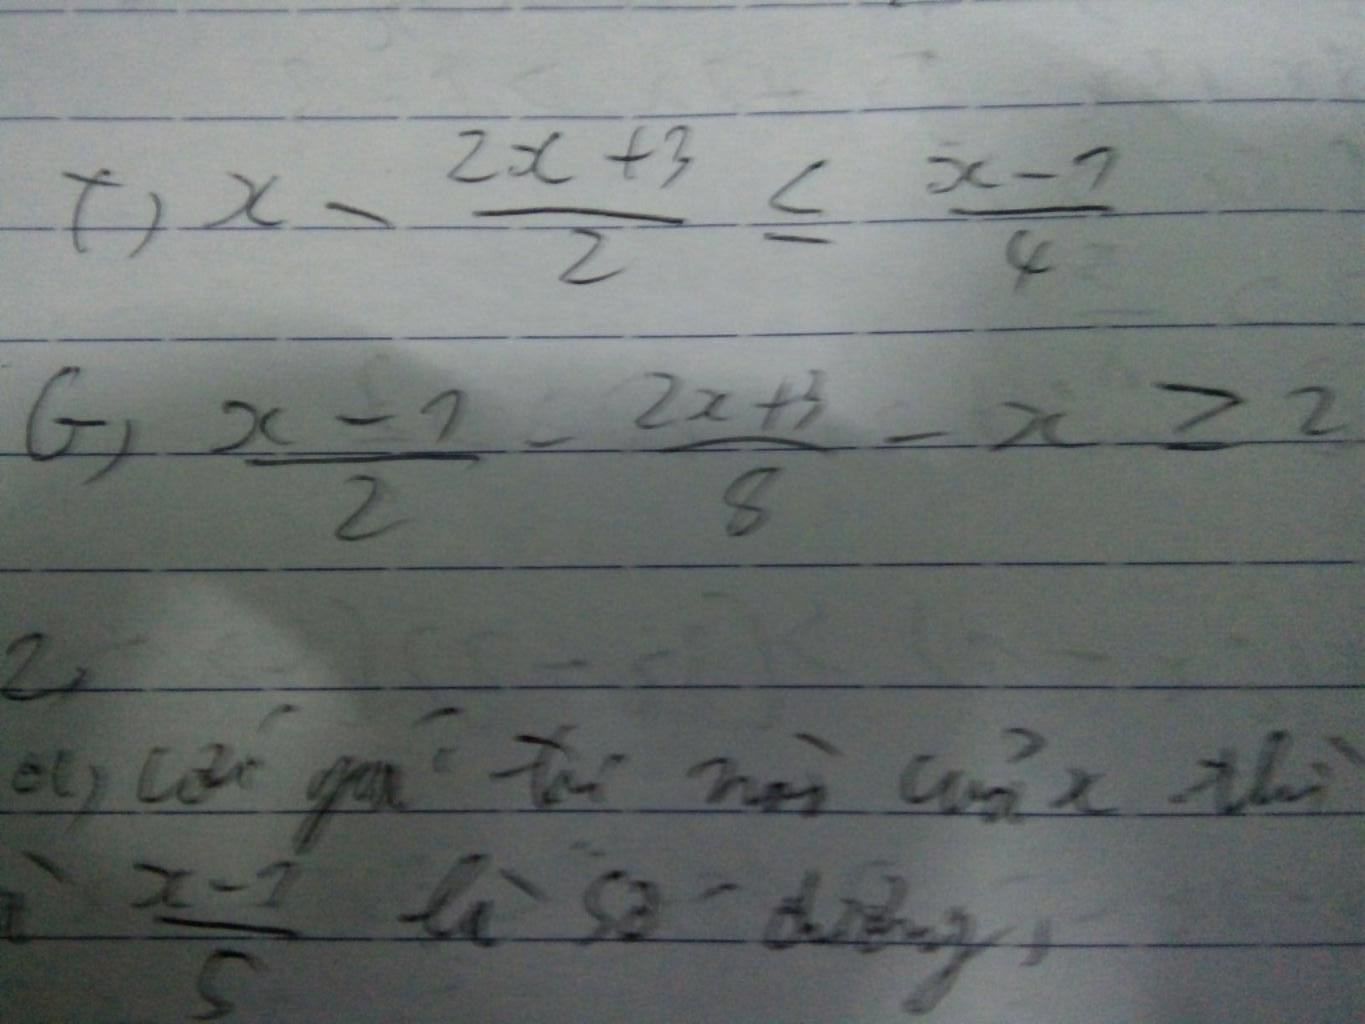 f) x - \frac{2x+3}{2} ≤ \frac{x-1}{4}
G) \frac{x-1}{2} - \frac{2x+3}{8} - x ≥ 2
2,
a, với giá trị nào của x thì
\frac{x-1}{5} là số dương,